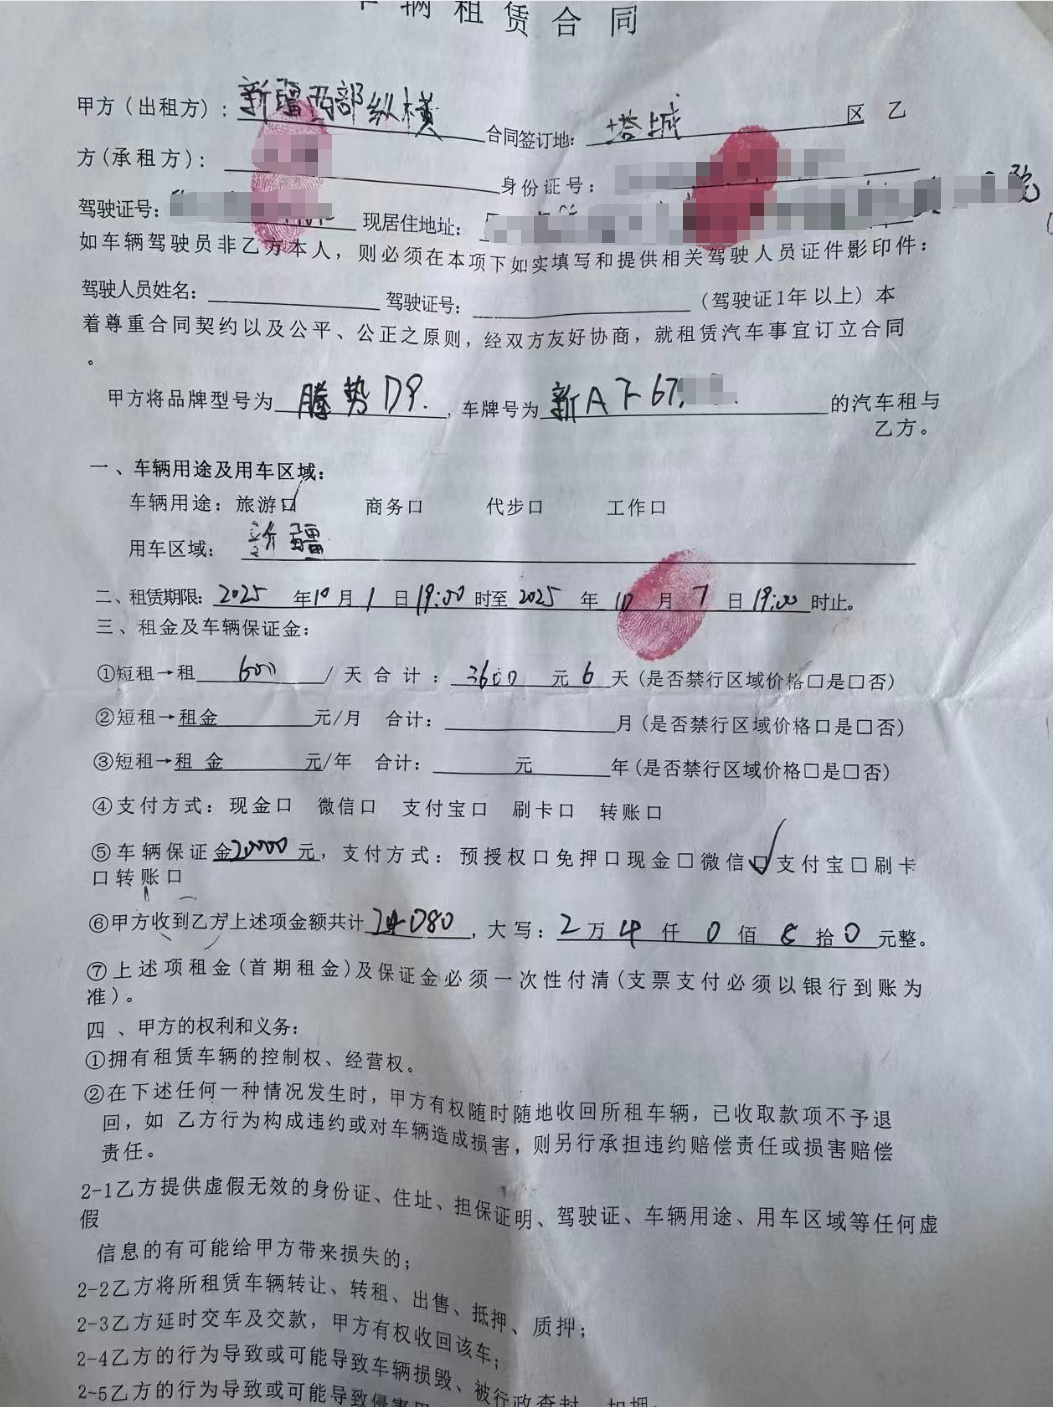 车辆租赁合同
甲方(出租方):新疆西部纵横 合同签订地: 塔城 区 乙
方(承租方): 身份证号:
驾驶证号: 现居住地址:
如车辆驾驶员非乙方本人,则必须在本项下如实填写和提供相关驾驶人员证件影印件:
驾驶人员姓名: 驾驶证号: (驾驶证1年以上)本
着尊重合同契约以及公平、公正之原则,经双方友好协商,就租赁汽车事宜订立合同
。
甲方将品牌型号为 腾势D9. ,车牌号为 新AF67 的汽车租与
乙方。
一、车辆用途及用车区域:
车辆用途:旅游口 商务口 代步口 工作口
用车区域: 新疆
二、租赁期限: 2025 年10月1日19:00时至2025 年 10 月 7 日 19:00 时止。
三、租金及车辆保证金:
①短租→租 600 / 天 合计: 3600 元 6 天(是否禁行区域价格口是口否)
②短租→租金 元/月 合计: 月(是否禁行区域价格口是口否)
③短租→租 金 元/年 合计: 元 年(是否禁行区域价格口是口否)
④支付方式:现金口 微信口 支付宝口 刷卡口 转账口
⑤车辆保证金20000元,支付方式:预授权口免押口现金口微信口支付宝口刷卡
口转账口
⑥甲方收到乙方上述项金额共计24080,大写:2万4仟0佰8拾0元整。
⑦上述项租金(首期租金)及保证金必须一次性付清(支票支付必须以银行到账为
准)。
四、甲方的权利和义务:
①拥有租赁车辆的控制权、经营权。
②在下述任何一种情况发生时,甲方有权随时随地收回所租车辆,已收取款项不予退
回,如 乙方行为构成违约或对车辆造成损害,则另行承担违约赔偿责任或损害赔偿
责任。
2-1乙方提供虚假无效的身份证、住址、担保证明、驾驶证、车辆用途、用车区域等任何虚
假
信息的有可能给甲方带来损失的;
2-2乙方将所租赁车辆转让、转租、出售、抵押、质押;
2-3乙方延时交车及交款,甲方有权收回该车;
2-4乙方的行为导致或可能导致车辆损毁、被行政查封、扣押;
2-5乙方的行为导致或可能导致侵害